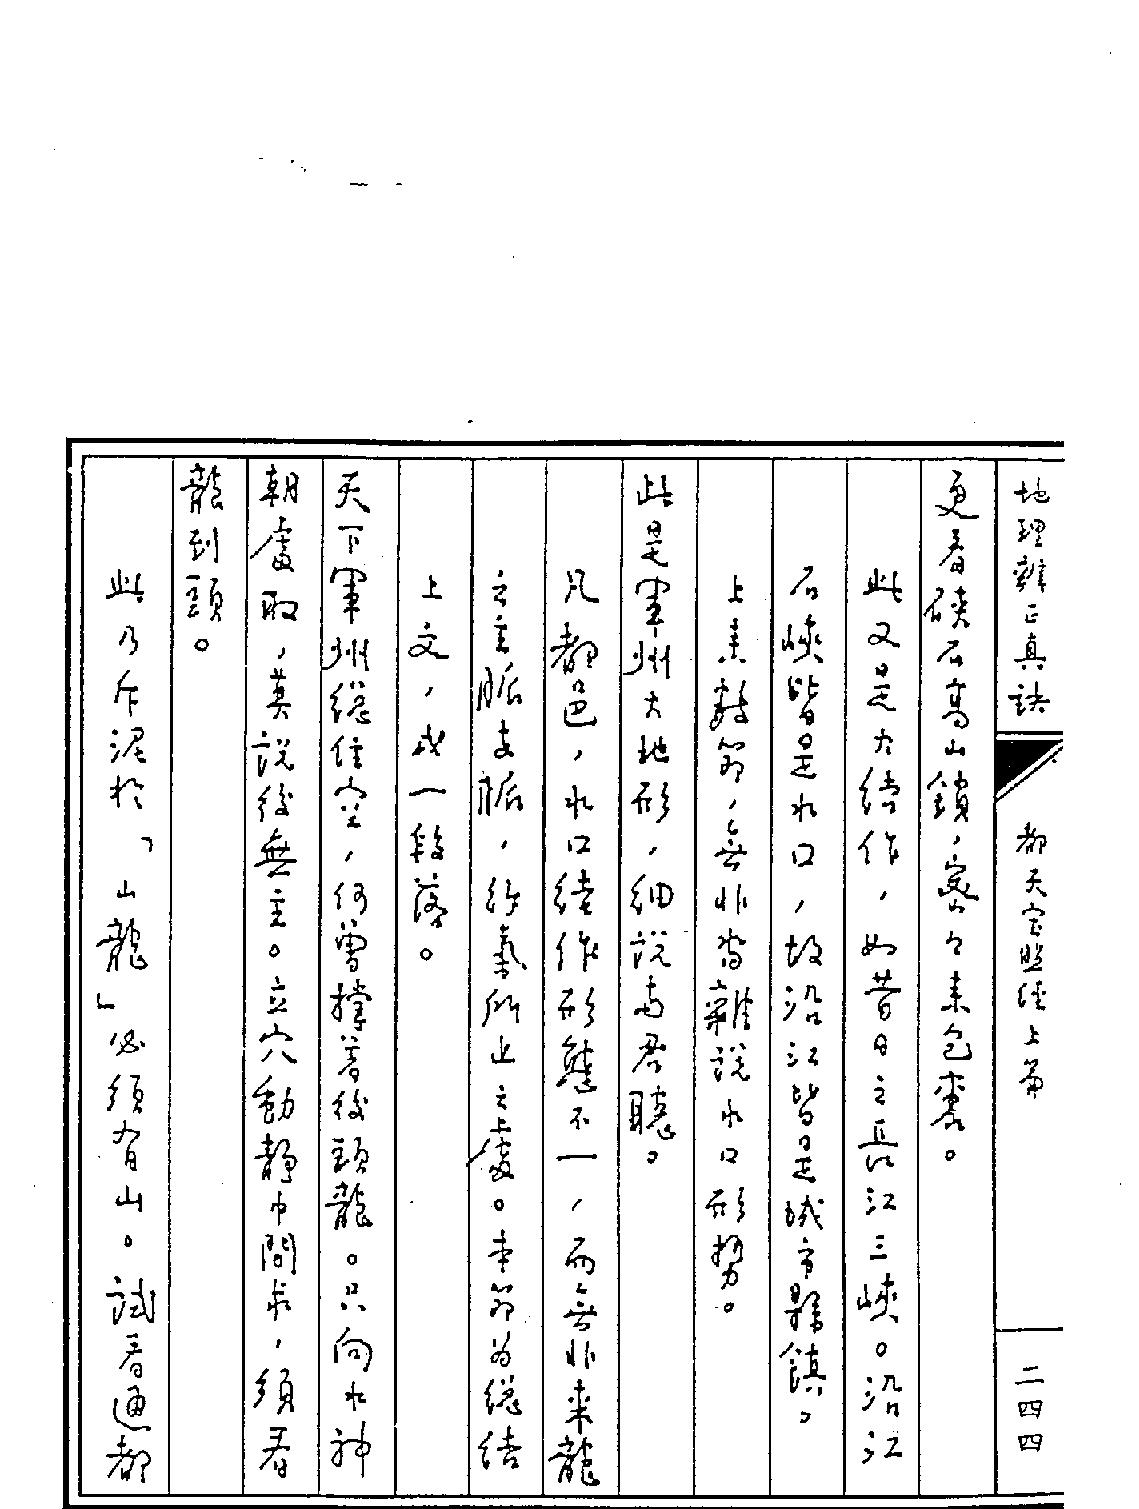 地理辨正真訣
都天宝照经上篇
二四四
更看硤石高山鎖，密々来包裹。
此又是大结作，如昔日之長江三峽。沿江
石峽皆是水口，故沿江皆是城市縣鎮。
上来數節，無非畧離説水口形势。
此是軍州大地形，细説与君聽。
凡都邑，水口结作形態不一，而無非来龍
之主脈支脈，行氣所止之處。本節为總结
上文，成一段落。
天下軍州總住空，何曾撐著後頭龍。只向水神
朝處取，莫説後無主。立穴動静中間求，須看
龍到頭。
此乃斥泥於「山龍」必須有山。試看通都